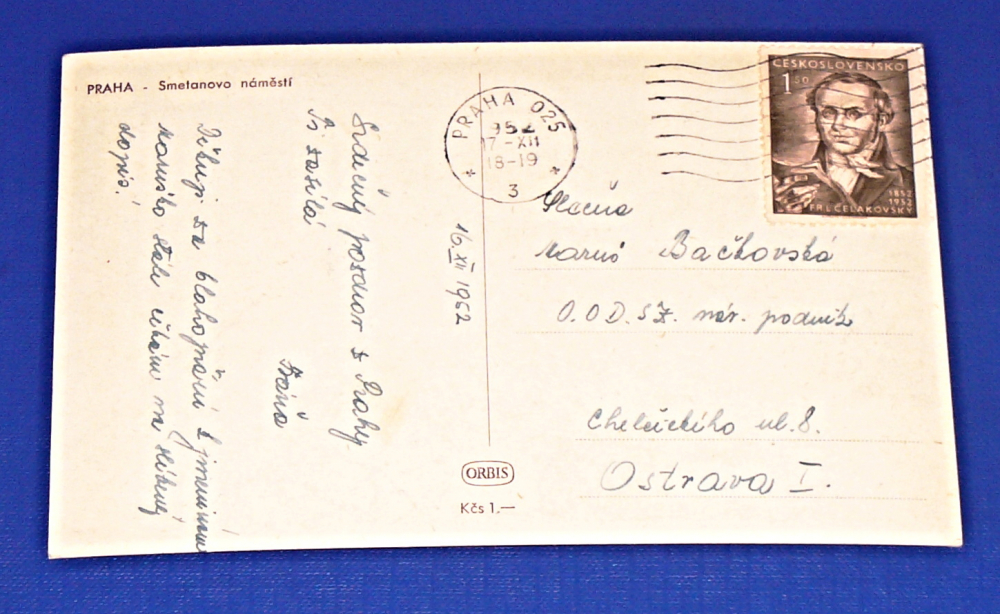 PRAHA - Smetanovo náměstí
Srdečný pozdrav z Prahy
Ti zasílá
Děkuji za blahopřání k jmeninám
Maruško stále čekám na slíbený
dopis!
16. XII 1952
PRAHA 025
952
17-XII
18-19
3
ČESKOSLOVENSKO
1 50
1852
1952
FR. L. ČELAKOVSKÝ
Slečna
Bačkovská
O.O.D. SZ. nár. podnik
Chelčického ul. 8.
Ostrava I.
ORBIS
Kčs 1.—